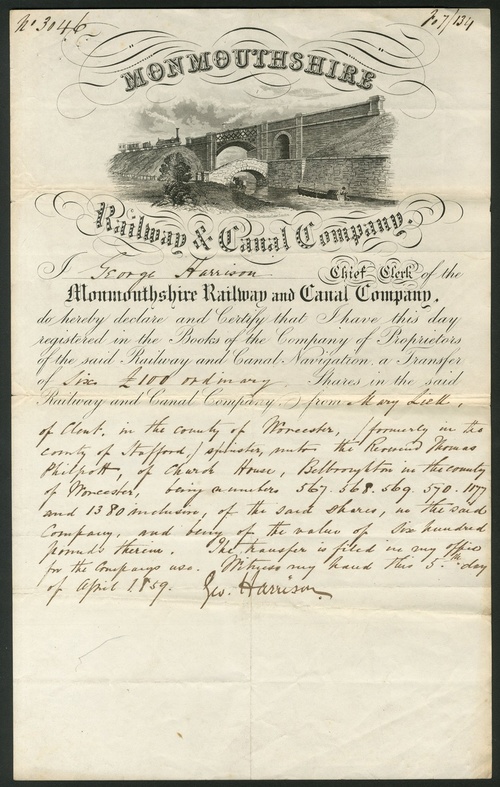 No 3046
Fo 7/134
MONMOUTHSHIRE
Railway & Canal Company.
I George Harrison Chief Clerk of the
Monmouthshire Railway and Canal Company,
do hereby declare and Certify that I have this day
registered in the Books of the Company of Proprietors
of the said Railway and Canal Navigation, a Transfer
of Six £100 ordinary Shares in the said
Railway and Canal Company, from Mary
of Clent, in the county of Worcester, (formerly in the
county of Stafford,) spinster, unto the Reverend Thomas
Philpott, of Church House, Belbroughton in the county
of Worcester, being numbers 567. 568. 569. 570. 1377
and 1380 inclusive, of the said shares, in the said
Company, and being of the value of Six hundred
pounds therein. The transfer is filed in my office
for the Companys use. Witness my hand this 5th day
of April 1859. Geo. Harrison